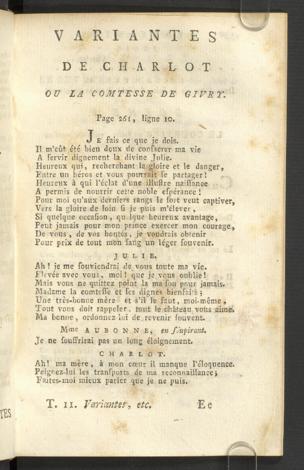 VARIANTES
DE CHARLOT
OU LA COMTESSE DE GIVRY.
Page 261, ligne 10.
JE fais ce que je dois.
Il m'eût été bien doux de conserver ma vie
A servir dignement la divine Julie.
Heureux qui, recherchant la gloire et le danger,
Entre un héros et vous pourrait se partager!
Heureux à qui l'éclat d'une illustre naissance
A permis de nourrir cette noble espérance!
Pour moi qu'aux derniers rangs le sort veut captiver,
Vers la gloire de loin si je puis m'élever,
Si quelque occasion, quelque heureux avantage,
Peut jamais pour mon prince exercer mon courage,
De vous, de vos bontés, je voudrais obtenir
Pour prix de tout mon sang un léger souvenir.
JULIE.
Ah! je me souviendrai de vous toute ma vie.
Elevée avec vous, moi! que je vous oublie!
Mais vous ne quittez point la maison pour jamais.
Madame la comtesse et ses dignes bienfaits;
Une très-bonne mère et s'il le faut, moi-même,
Tout vous doit rappeler, tout le château vous aime.
Ma bonne, ordonnez lui de revenir souvent.
Mme AUBONNE, en soupirant.
Je ne souffrirai pas un long éloignement.
CHARLOT.
Ah! ma mère, à mon cœur il manque l'éloquence.
Peignez-lui les transports de ma reconnaissance;
Faites-moi mieux parler que je ne puis.
T. 11. Variantes, etc. Ee